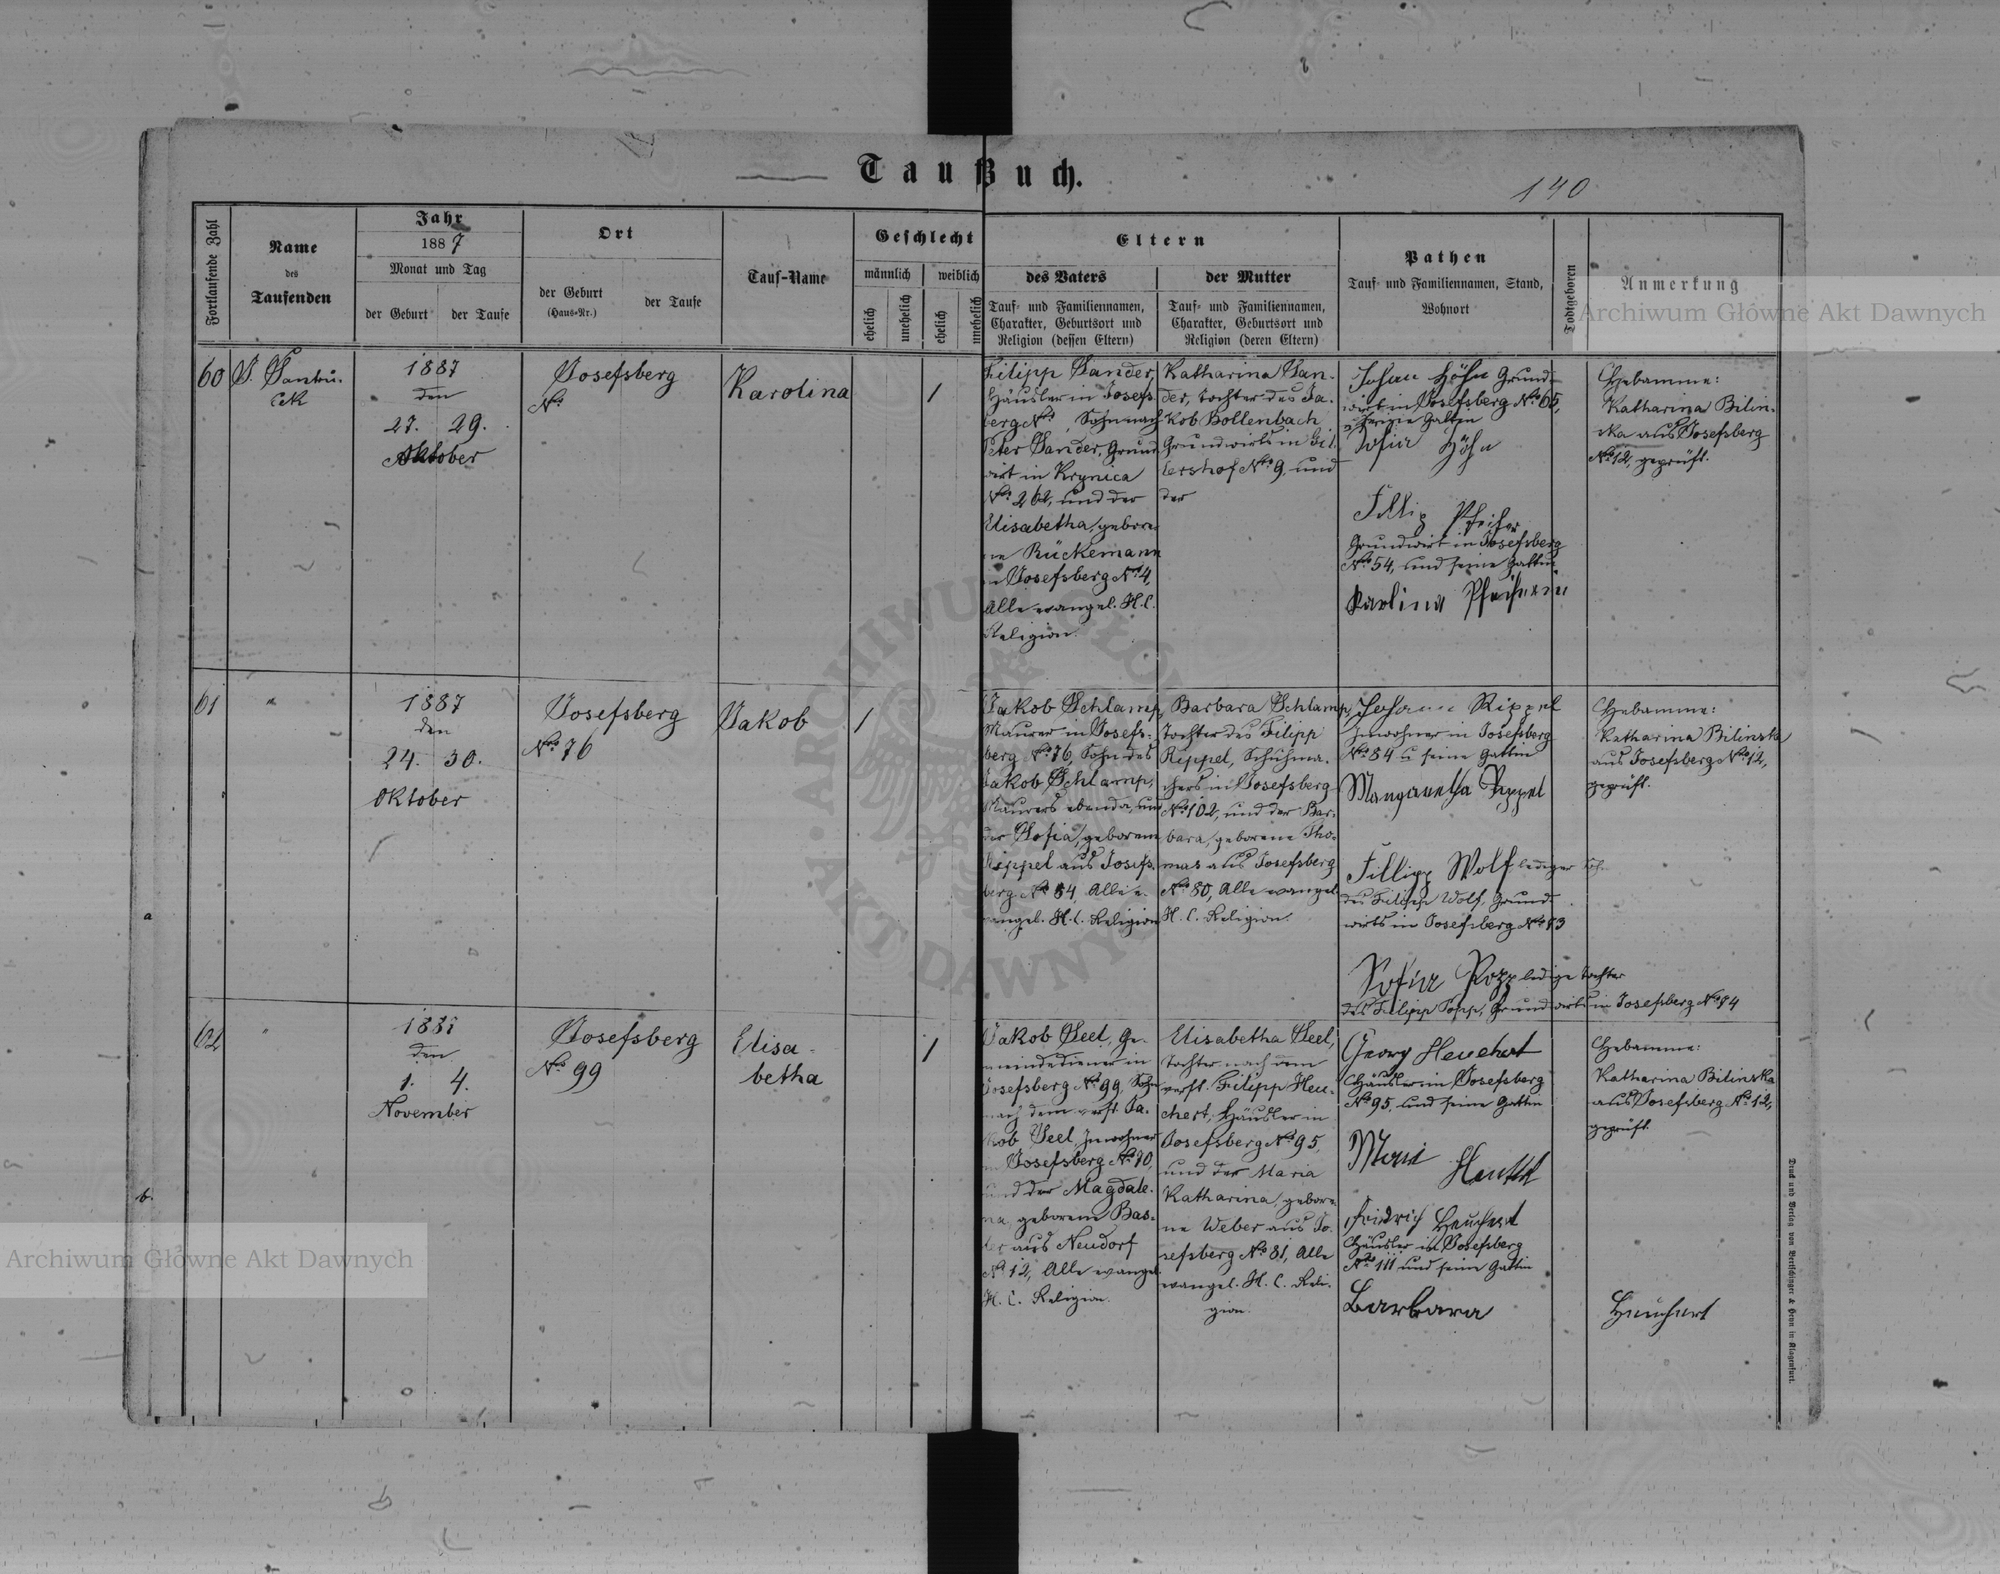 Taufbuch.
140
Fortlaufende Zahl
Name
des
Taufenden
Jahr
1887
Monat und Tag
der Geburt
der Taufe
Ort
der Geburt
(Haus-Nr.)
der Taufe
Tauf-Name
Geschlecht
männlich
weiblich
ehelich
unehelich
ehelich
unehelich
Eltern
des Vaters
Tauf- und Familiennamen,
Charakter, Geburtsort und
Religion (dessen Eltern)
der Mutter
Tauf- und Familiennamen,
Charakter, Geburtsort und
Religion (deren Eltern)
Pathen
Tauf- und Familiennamen, Stand,
Wohnort
Todtgeboren
Anmerkung
Archiwum Główne Akt Dawnych
60
1887
den
27. 29.
Oktober
Josefsberg
No.
Karolina
1
Filipp Sander,
Häusler in Josefs-
berg No. , Sohn nach
Peter Sander, Grund-
wirt in Krynica
No. 262, und der
Elisabetha, gebore-
ne Rückemann
in Josefsberg No. 4,
Alle evangel. H. C.
Religion.
Katharina San-
der, Tochter des Ja-
kob Bollenbach
Grundwirts in
No. 9, und
der
Johan Höhn Grund-
wirt in Josefsberg No. 65,
u. seine Gattin
Sofia Höhn
Fillip Pfeifer
Grundwirt in Josefsberg
No. 54, und seine Gattin
Karlina
Hebamme:
Katharina Bilin-
ska aus Josefsberg
No. 12, geprüft.
61
"
1887
den
24. 30.
Oktober
Josefsberg
No. 76
Jakob
1
Jakob Schlamp,
Maurer in Josefs-
berg No. 76, Sohn des
Jakob Schlamp,
Maurers ebenda, und
der Sofia, geborene
Rippel aus Josefs-
berg No. 84, Alle e-
vangel. H. C. Religion
Barbara Schlamp,
Tochter des Filipp
Rippel, Schuhma-
chers in Josefsberg
No. 102, und der Bar-
bara, geborene Tho-
mas aus Josefsberg
No. 80, Alle evangel.
H. C. Religion.
Johann Rippel
Inwohner in Josefsberg
No. 84 u. seine Gattin
Margaretha Rippel
Fillipp Wolf lediger Sohn
des Filipp Wolf, Grund-
wirts in Josefsberg No.
Sofia Popp ledige Tochter
des Filipp Popp, Grundwirts in Josefsberg No.
Hebamme:
Katharina Bilinska
aus Josefsberg No. 12,
geprüft.
62
"
1887
den
1. 4.
November
Josefsberg
No. 99
Elisa-
betha
1
Jakob Seel, Ge-
meindediener in
Josefsberg No. 99, Sohn
nach dem verst. Ja-
kob Seel, Inwohner
in Josefsberg No. 70,
und der Magdale-
na, geborene Bas-
aus Neudorf
No. 12, Alle evangel.
H. C. Religion.
Elisabetha Seel,
Tochter nach dem
verst. Filipp Heu-
chert, Häusler in
Josefsberg No. 95,
und der Maria
Katharina, gebore-
ne Weber aus Jo-
sefsberg No. 81, Alle
evangel. H. C. Reli-
gion.
Georg Heuchert
Häusler in Josefsberg
No. 95, und seine Gattin
Maria
Fridrich Heuchert
Häusler in Josefsberg
No. 111 und seine Gattin
Barbara Heuchert
Hebamme:
Katharina Bilinska
aus Josefsberg No. 12,
geprüft.
a
b.
Archiwum Główne Akt Dawnych
ARCHIWUM GŁÓWNE AKT DAWNYCH